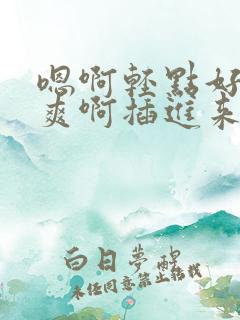 嗯啊輕點好
爽啊插進來
白日夢醒
未经同意禁止转载